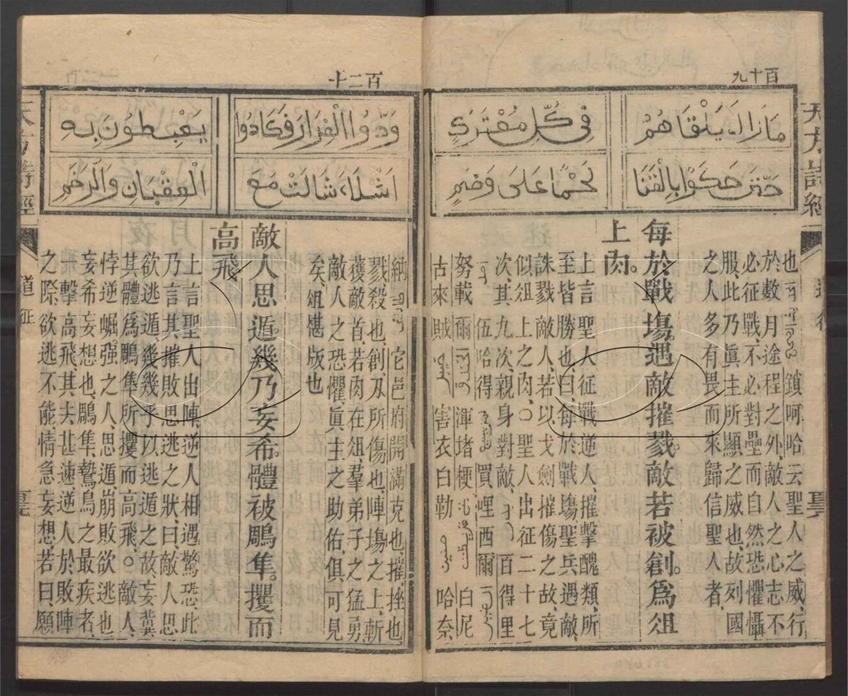 百十九
مازال يلقاهم
في كل معترك
حتى حكوا بالقنا
لحما على وضم
天方詩經
道征
也 鎖呵哈云聖人之威、行
於數月途程之外、敵人之心志不
必征戰、不必對壘而自然恐懼懾
服、此乃眞主所顯之威也、故列國
之人多有畏而來歸信聖人者、
每於戰塲。遇敵摧戮。敵若被創。爲俎
上肉。
上言聖人征戰逆人、摧擊醜類、所
至皆勝也、曰每於戰塲、聖兵遇敵、
誅戮敵人、若以戈劍摧傷之故、竟
似俎上之肉、○聖人出征二十七
次、其九次、親身對敵、 百得里
伍哈得 買哩西爾
努載爾 渾堵梗 白尼
古來賊 害衣白勒 哈奈
百二十
ودوا الفرار فكادوا
يغبطون به
اشلاء شالت مع
العقبان والرخم
納 它邑府開滿克也、摧挫也
戮殺也、創刃所傷也、陣塲之上、斬
獲敵首、若肉在俎、羣弟子之猛勇
敵人之恐懼、眞主之助佑、俱可見
矣、俎堪版也
敵人思遁。幾乃妄希。體被鵰隼。攫而
高飛。
上言聖人出陣、逆人相遇驚恐、此
乃言其摧敗思逃之狀、曰敵人思
欲逃遁、幾幾乎以逃遁之故、妄冀
其體爲鵰隼所攫而高飛、○敵人、
悖逆崛强之人、思遁崩敗欲逃也
妄希妄想也、鵰隼鷙鳥之最疾者、
一擊高飛、其去甚速、逆人於敗陣
之際、欲逃不能、情急妄想、若曰、願
天方詩經
道征